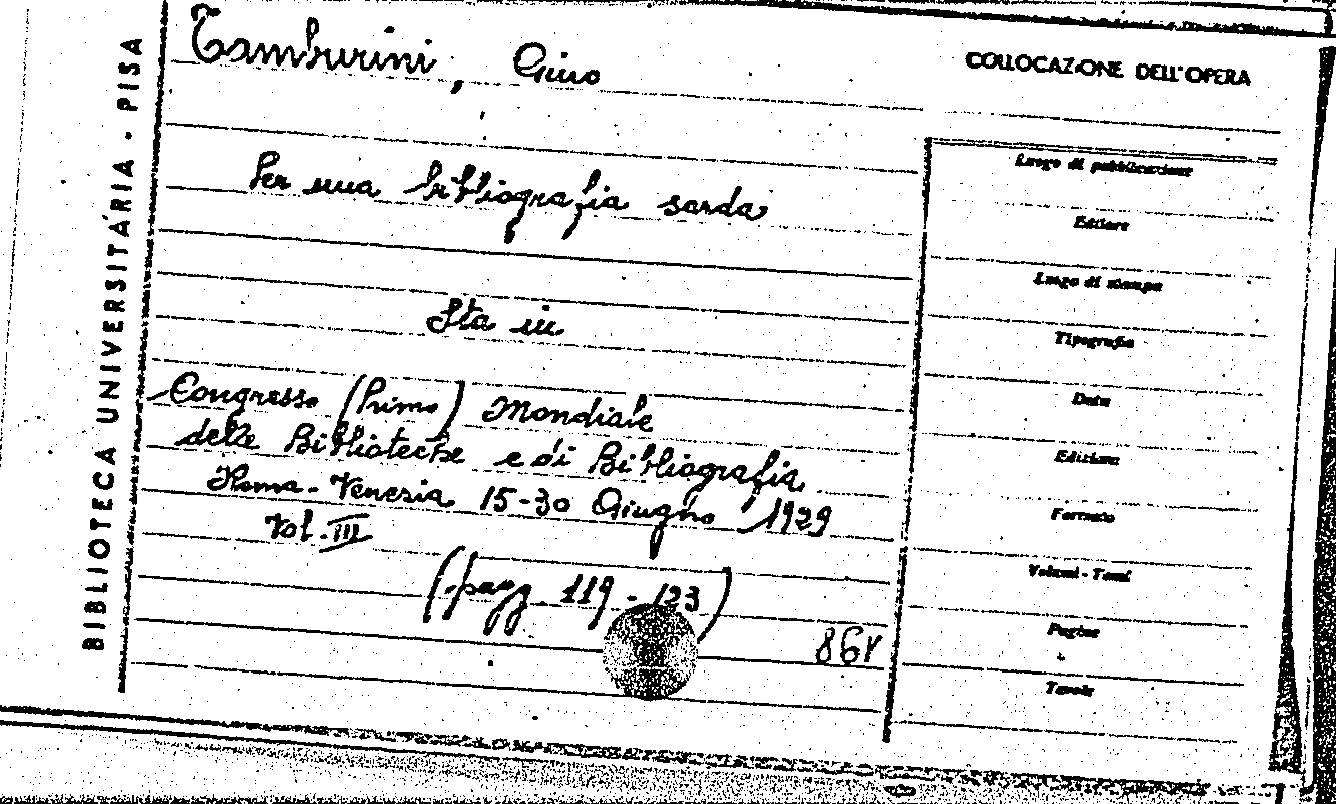 BIBLIOTECA UNIVERSITARIA - PISA
Tamburini, Gino
Per una bibliografia sarda
Sta in
Congresso (Primo) Mondiale
delle Biblioteche e di Bibliografia
Roma - Venezia 15-30 Giugno 1929
Vol. III
(pagg. 119 - 123)
COLLOCAZIONE DELL'OPERA
Luogo di pubblicazione
Editore
Luogo di stampa
Tipografia
Data
Edizione
Formato
Volumi - Tomi
Pagine
Tavole